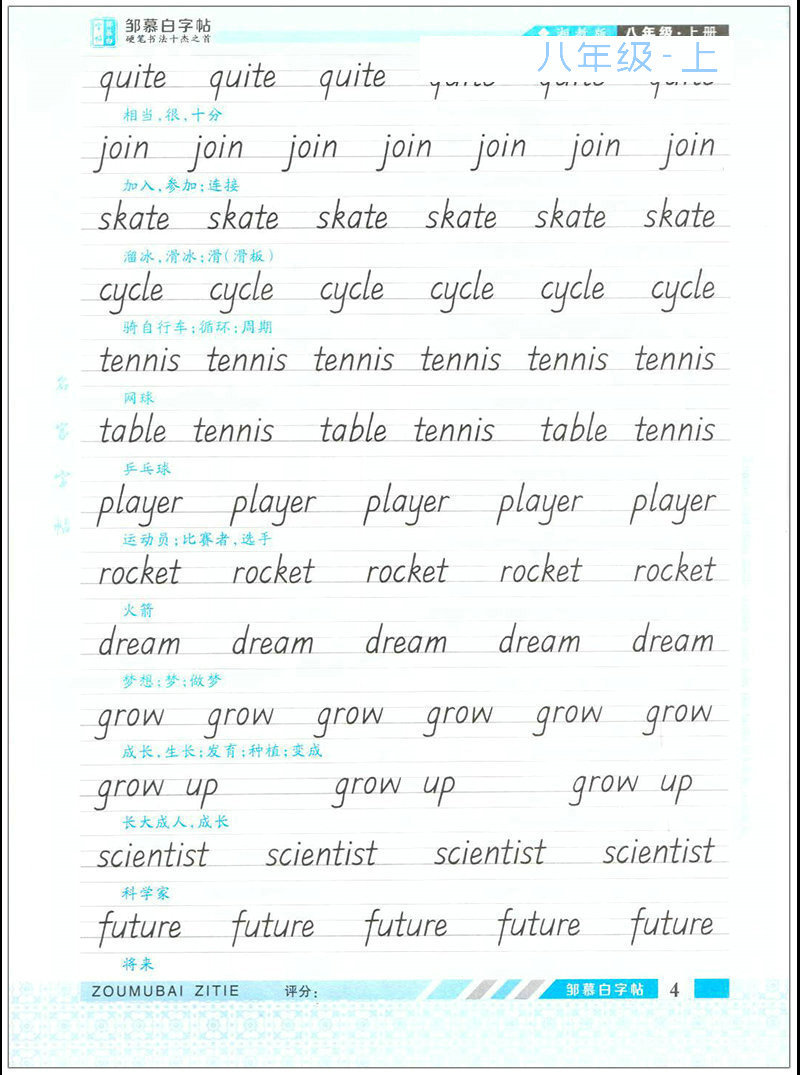 邹慕白字帖
硬笔书法十杰之首
湘教版 八年级·上册
八年级-上
quite quite quite quite quite quite
相当,很,十分
join join join join join join join
加入,参加;连接
skate skate skate skate skate skate
溜冰,滑冰;滑(滑板)
cycle cycle cycle cycle cycle cycle
骑自行车;循环;周期
tennis tennis tennis tennis tennis tennis
网球
table tennis table tennis table tennis
乒乓球
player player player player player
运动员;比赛者,选手
rocket rocket rocket rocket rocket
火箭
dream dream dream dream dream
梦想;梦;做梦
grow grow grow grow grow grow
成长,生长;发育;种植;变成
grow up grow up grow up
长大成人,成长
scientist scientist scientist scientist
科学家
future future future future future
将来
名家字帖
ZOUMUBAI ZITIE 评分: 邹慕白字帖 4